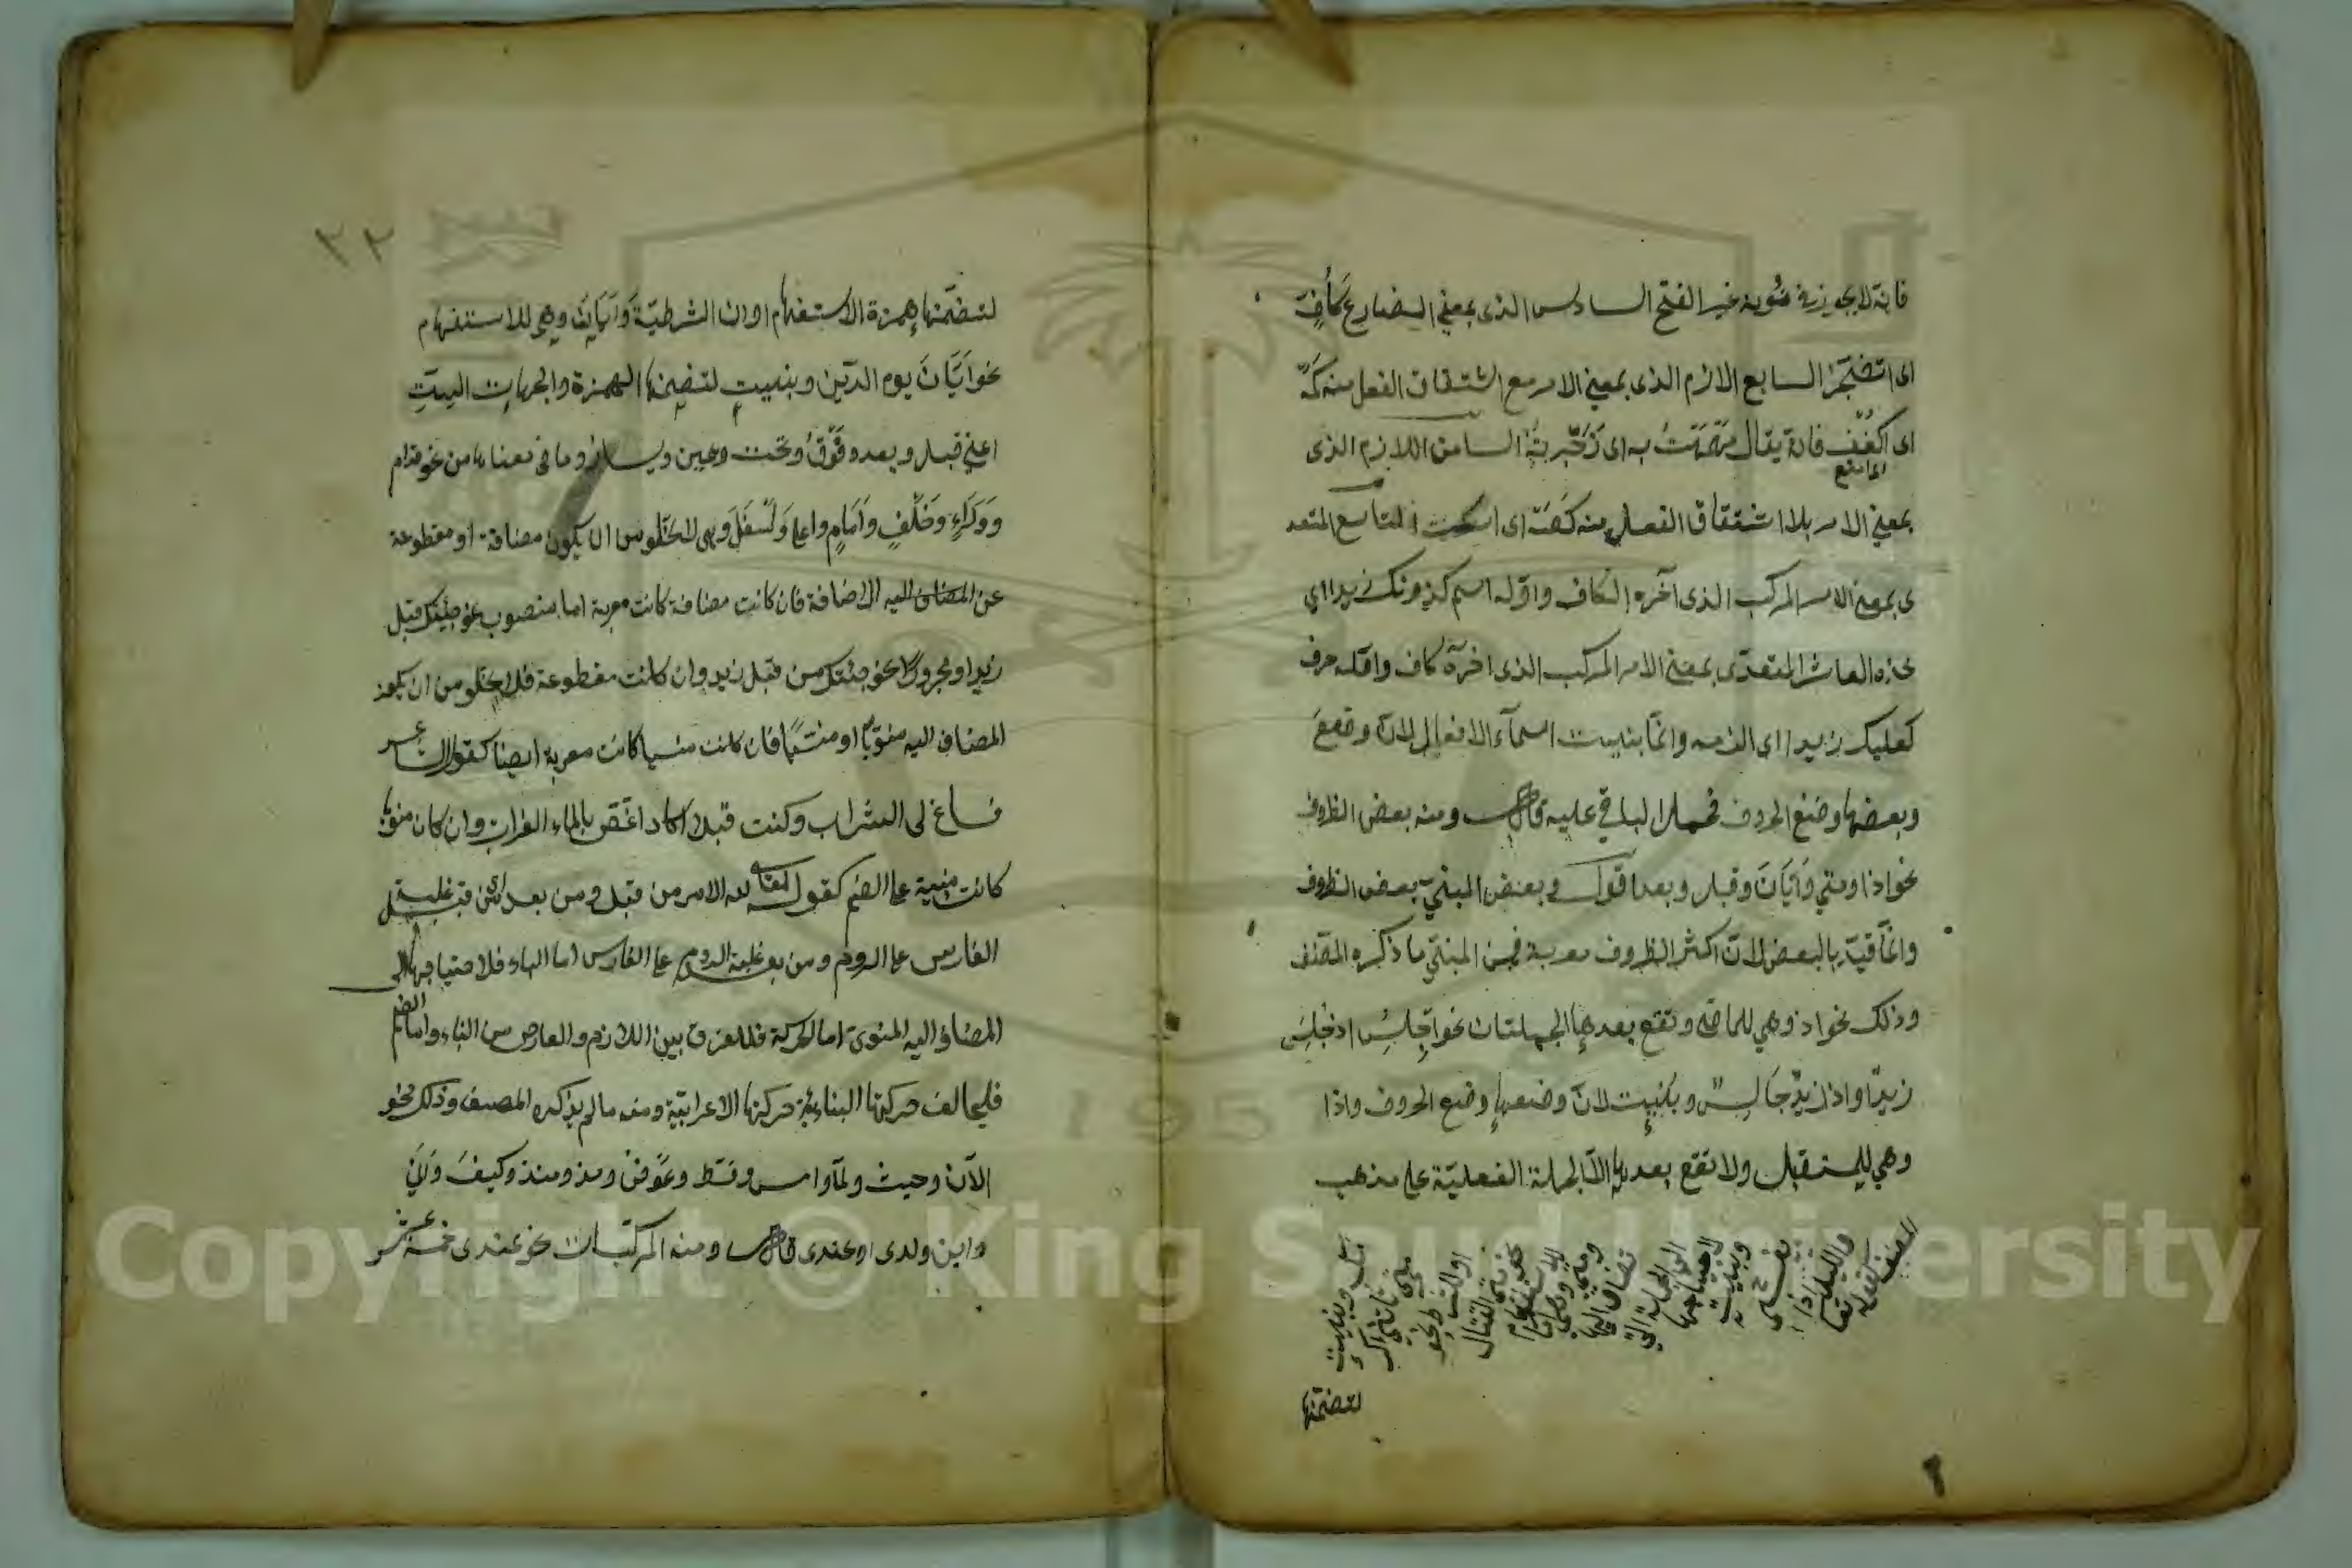 فانه لا يجوز في نونه غير الفتح السادس الذى بمعنى المضارع كأفٍّ
اى اتضجّر السابع الازم الذى بمعنى الامر مع اشتقاق الفعل منه كمَهْ
اى اكفف فانه يقال مَهْمَهْتُ به اى زجرته الثامن اللازم الذى
اى امتنع
بمعنى الامر بلا اشتقاق الفعل منه كصَهْ اى اسكت التاسع المتعد
ى بمعنى الامر المركب الذى آخره الكاف واوّله اسم كدونك زيدا اى
خذه العاشر المتعدّى بمعنى الامر المركب الذى اخره كاف واوّله حرف
كعليك زيدا اى الزمه وانّما بنيت اسمآء الافعال لانّ وضع
وبعضها وضع الحروف فحمل الباقي عليه قال ومنه بعض الظروف
نحو اذا ومتي وَاَيّانَ وقبل وبعد اقول وبعض المبنيّ بعض الظروف
وانّما قيّد بالبعض لانّ اكثر الظروف معربة فمن المبنيّ ما ذكره المصنف
وذلك نحو اذ وهي للماضى وتقع بعدها الجملتان نحو اجلس اذ جلس
زيدٌ واذ زيدٌ جالسٌ وبُنِيت لانّ وضعها وضع الحروف واذا
وهي للمستقبل ولا تقع بعدها الاّ الجملة الفعليّة على مذهب
المصنف كقوله تعا
والليل اذا
يغشى
وبنيت
لاحتياجها
الى الجملة التى
تضاف اليها
ومتى وهى
للاستفهام
نحو متى القتال
او للشرط نحو
متى تأتنى اكرمك
وبنيت
لتضمّنها
٣٢
لتضمّنها همزة الاستفهام او ان الشرطيّة وَاَيّانَ وهي للاستفهام
نحو اَيّانَ يوم الدّين وبنيت لتضمنها الهمزة والجهات الستِّ
اعني قبل وبعد وفَوْقُ وتحت ويمين ويسار وما فى معناها من نحو قدام
وورَاءٍ وخَلْفٍ واَمَامٍ واعلى وَاَسْفَلَ وهى لا تخلو من ان يكون مضافة او مقطوعة
عن المضاف اليه الاضافة فان كانت مضافة كانت معربة اما منصوب نحو جئتك قبل
زيد او مجرورا نحو جئتك من قبل زيد وان كانت مقطوعة فلا يخلو من ان يكون
المضاف اليه منويّا او منسيّا فان كانت منسيا كانت معربة ايضا كقول الشاعر
فساغ لى الشراب وكنت قبلا اكاد اغصّ بالماء الفرات وان كان منويّا
كانت مبنية على الضم كقوله تعالى لله الامر من قبل ومن بعد اى من قبل غلبة
الفارس على الروم ومن بعد غلبة الروم على الفارس اما البناء فلاحتياجها الى
المضاف اليه المنوى اما الحركة فللفرق بين اللازم والعارض من البناء واما الضم
فليخالف حركتها البنائيّة حركتها الاعرابيّة ومنه ما لم يذكره المصنف وذلك نحو
الآن وحيث ولمّا وامس وقط وعَوْضُ ومذ ومنذ وكيفَ واَنّى
واين ولدى او عندى قال ومنه المركّبات نحو عندى خمسة عشر